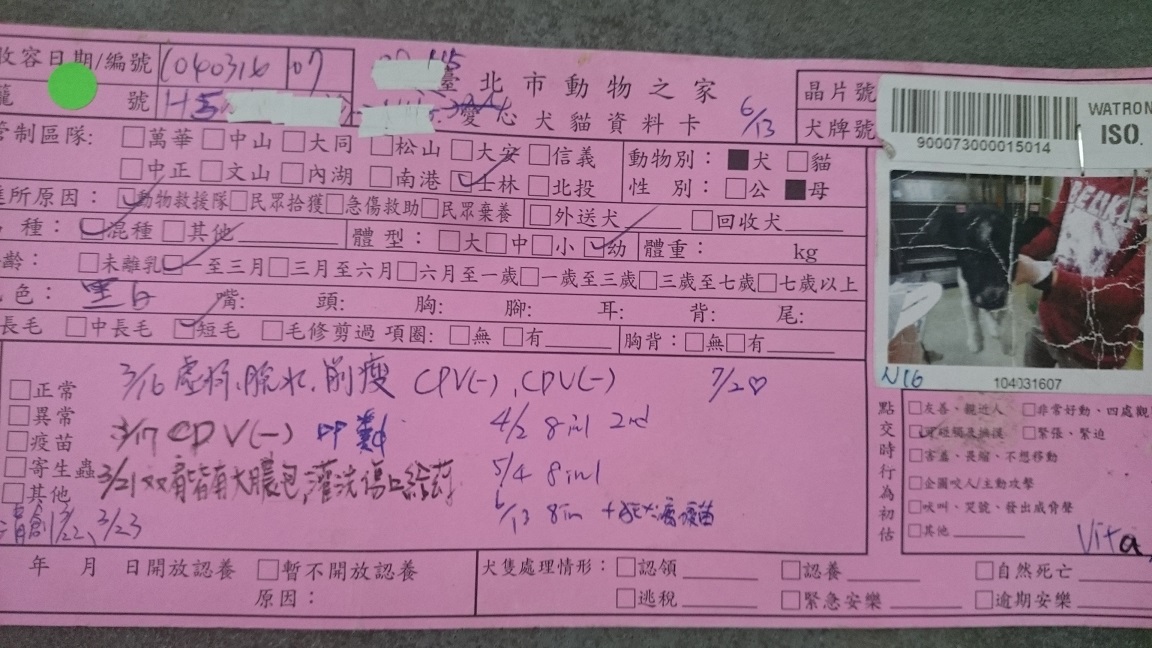 收容日期/編號 1040316 07
臺北市動物之家
籠 號 H5
愛心犬貓資料卡 6/13
晶片號
犬牌號
900073000015014
WATRON
ISO.
管制區隊: □萬華 □中山 □大同 □松山 □大安 □信義
□中正 □文山 □內湖 □南港 ☑士林 □北投
動物別: ■犬 □貓
性 別: □公 ■母
所原因: ☑動物救援隊 □民眾拾獲 □急傷救助 □民眾棄養 □外送犬 □回收犬
種: ☑混種 □其他 體 型: □大 □中 □小 ☑幼 體重: kg
齡: □未離乳 ☑一至三月 □三月至六月 □六月至一歲 □一歲至三歲 □三歲至七歲 □七歲以上
色: 黑白 嘴: 頭: 胸: 腳: 耳: 背: 尾:
長毛 □中長毛 ☑短毛 □毛修剪過 項圈: □無 □有 胸背: □無 □有
N16
104031607
□正常
□異常
□疫苗
□寄生蟲
□其他
3/16 脫水、削瘦 CPV(-), CDV(-) 7/2♡
3/17 CDV(-) 4/2 8 in1 2nd
3/21 有大膿包,灌洗傷口給药 5/4 8 in1
清創 3/22、3/23 6/13 8in +狂犬病疫苗
點交時行為初估
□友善、親近人 □非常好動、四處觀
☑ □緊張、緊迫
□害羞、畏縮、不想移動
□企圖咬人/主動攻擊
□吠叫、哭號、發出威脅聲
□其他
Vita
年 月 日開放認養 □暫不開放認養
原因:
犬隻處理情形: □認領 □認養 □自然死亡
□逃脫 □緊急安樂 □逾期安樂